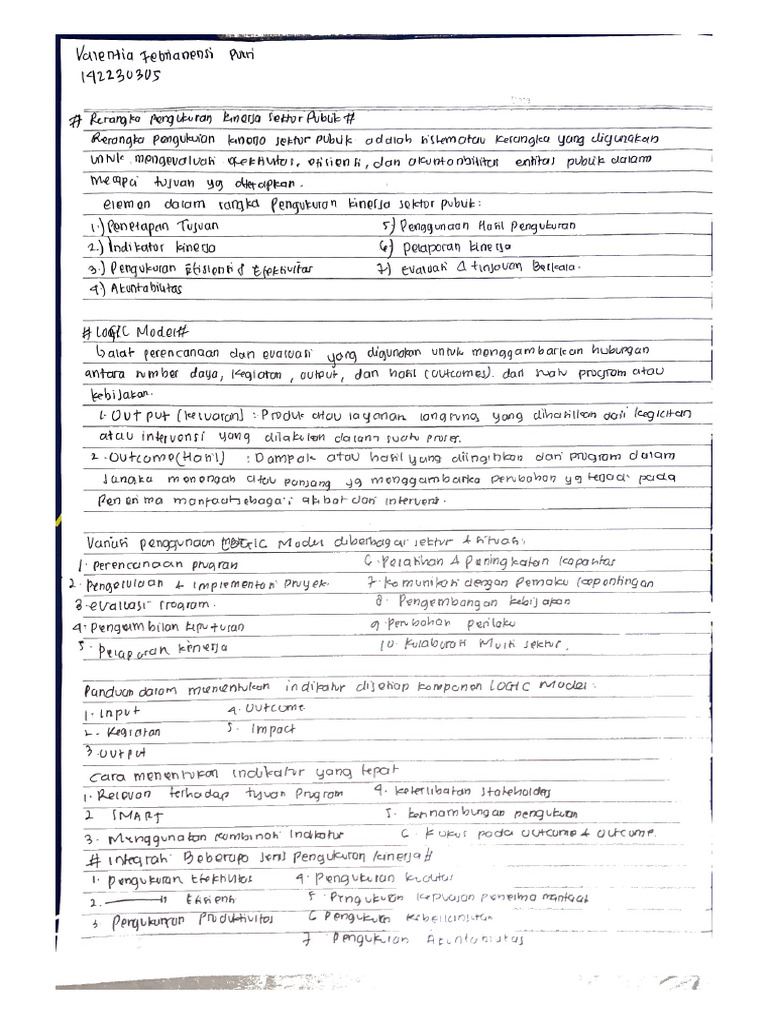 Valentia Febrianensi Putri
142230305
Date
# Kerangka Pengukuran Kinerja Sektor Publik #
Kerangka Pengukuran kinerja sektor Publik adalah sistem atau kerangka yang digunakan
untuk mengevaluasi efektivitas, efisiensi, dan akuntanbilitas entitas publik dalam
mencpai tujuan yg ditetapkan.
elemen dalam rangka Pengukuran Kinerja sektor Publik:
1.) Penetapan Tujuan
2.) Indikator kinerja
3.) Pengukuran Efisiensi & Efektivitas
4.) Akuntabilitas
5) Penggunaan Hasil Pengukuran
6) Pelaporan kinerja
7) Evaluasi & tinjauan Berkala.
# LOGIC Model #
balat perencanaan dan evaluasi yang digunakan untuk menggambarkan hubungan
antara sumber daya, kegiatan, output, dan hasil (outcomes). dari suatu program atau
kebijakan.
1. Output (keluaran) : Produk atau layanan langsung yang dihasilkan dari kegiatan
atau intervensi yang dilakukan dalam suatu proses.
2. Outcome (Hasil) : Dampak atau hasil yang diinginkan dari program dalam
jangka menengah atau panjang yg menggambarka perubahan yg terjadi pada
Penerima manfaat sebagai akibat dari intervensi.
Variasi penggunaan LOGIC Model diberbagai sektur & situasi:
1. Perencanaan program
2. Pengelolaan & implementasi Proyek.
3. evaluasi Program.
4. Pengambilan kiputuran
5. Pelaporan kenerja
6. Pelatihan & Peningkatan kapasitas
7. Komunikasi dengan Pemaku kepentingan
8. Pengembangan kebijakan
9. Perubahan perilaku
10. Kolaborasi Multi sektur.
Panduan dalam menentukan indikatur disetiap komponen LOGIC Model:
1. Input
2. Kegiatan
3. Output
4. Outcome
5. Impact
Cara menentukan indikatur yang tepat
1. Relevan terhadap tujuan Program
2 SMART
3. Menggunakan kombinasi Indikatur
4. Keterlibatan Stakeholder
5. kesinambungan pengukuran
6. Fokus pada outcome & outcome.
# Integrasi Beberapa Jenis Pengukuran kinerja #
1. Pengukuran Efektivitas
2. ———— 11 Efisiensi
3 Pengukuran Produktivitas
4. Pengukuran kualitas
5. Pengukuran kepuasan penerima manfaat
6 Pengukuran keberlanjutan
7 Pengukuran Akuntabilitas